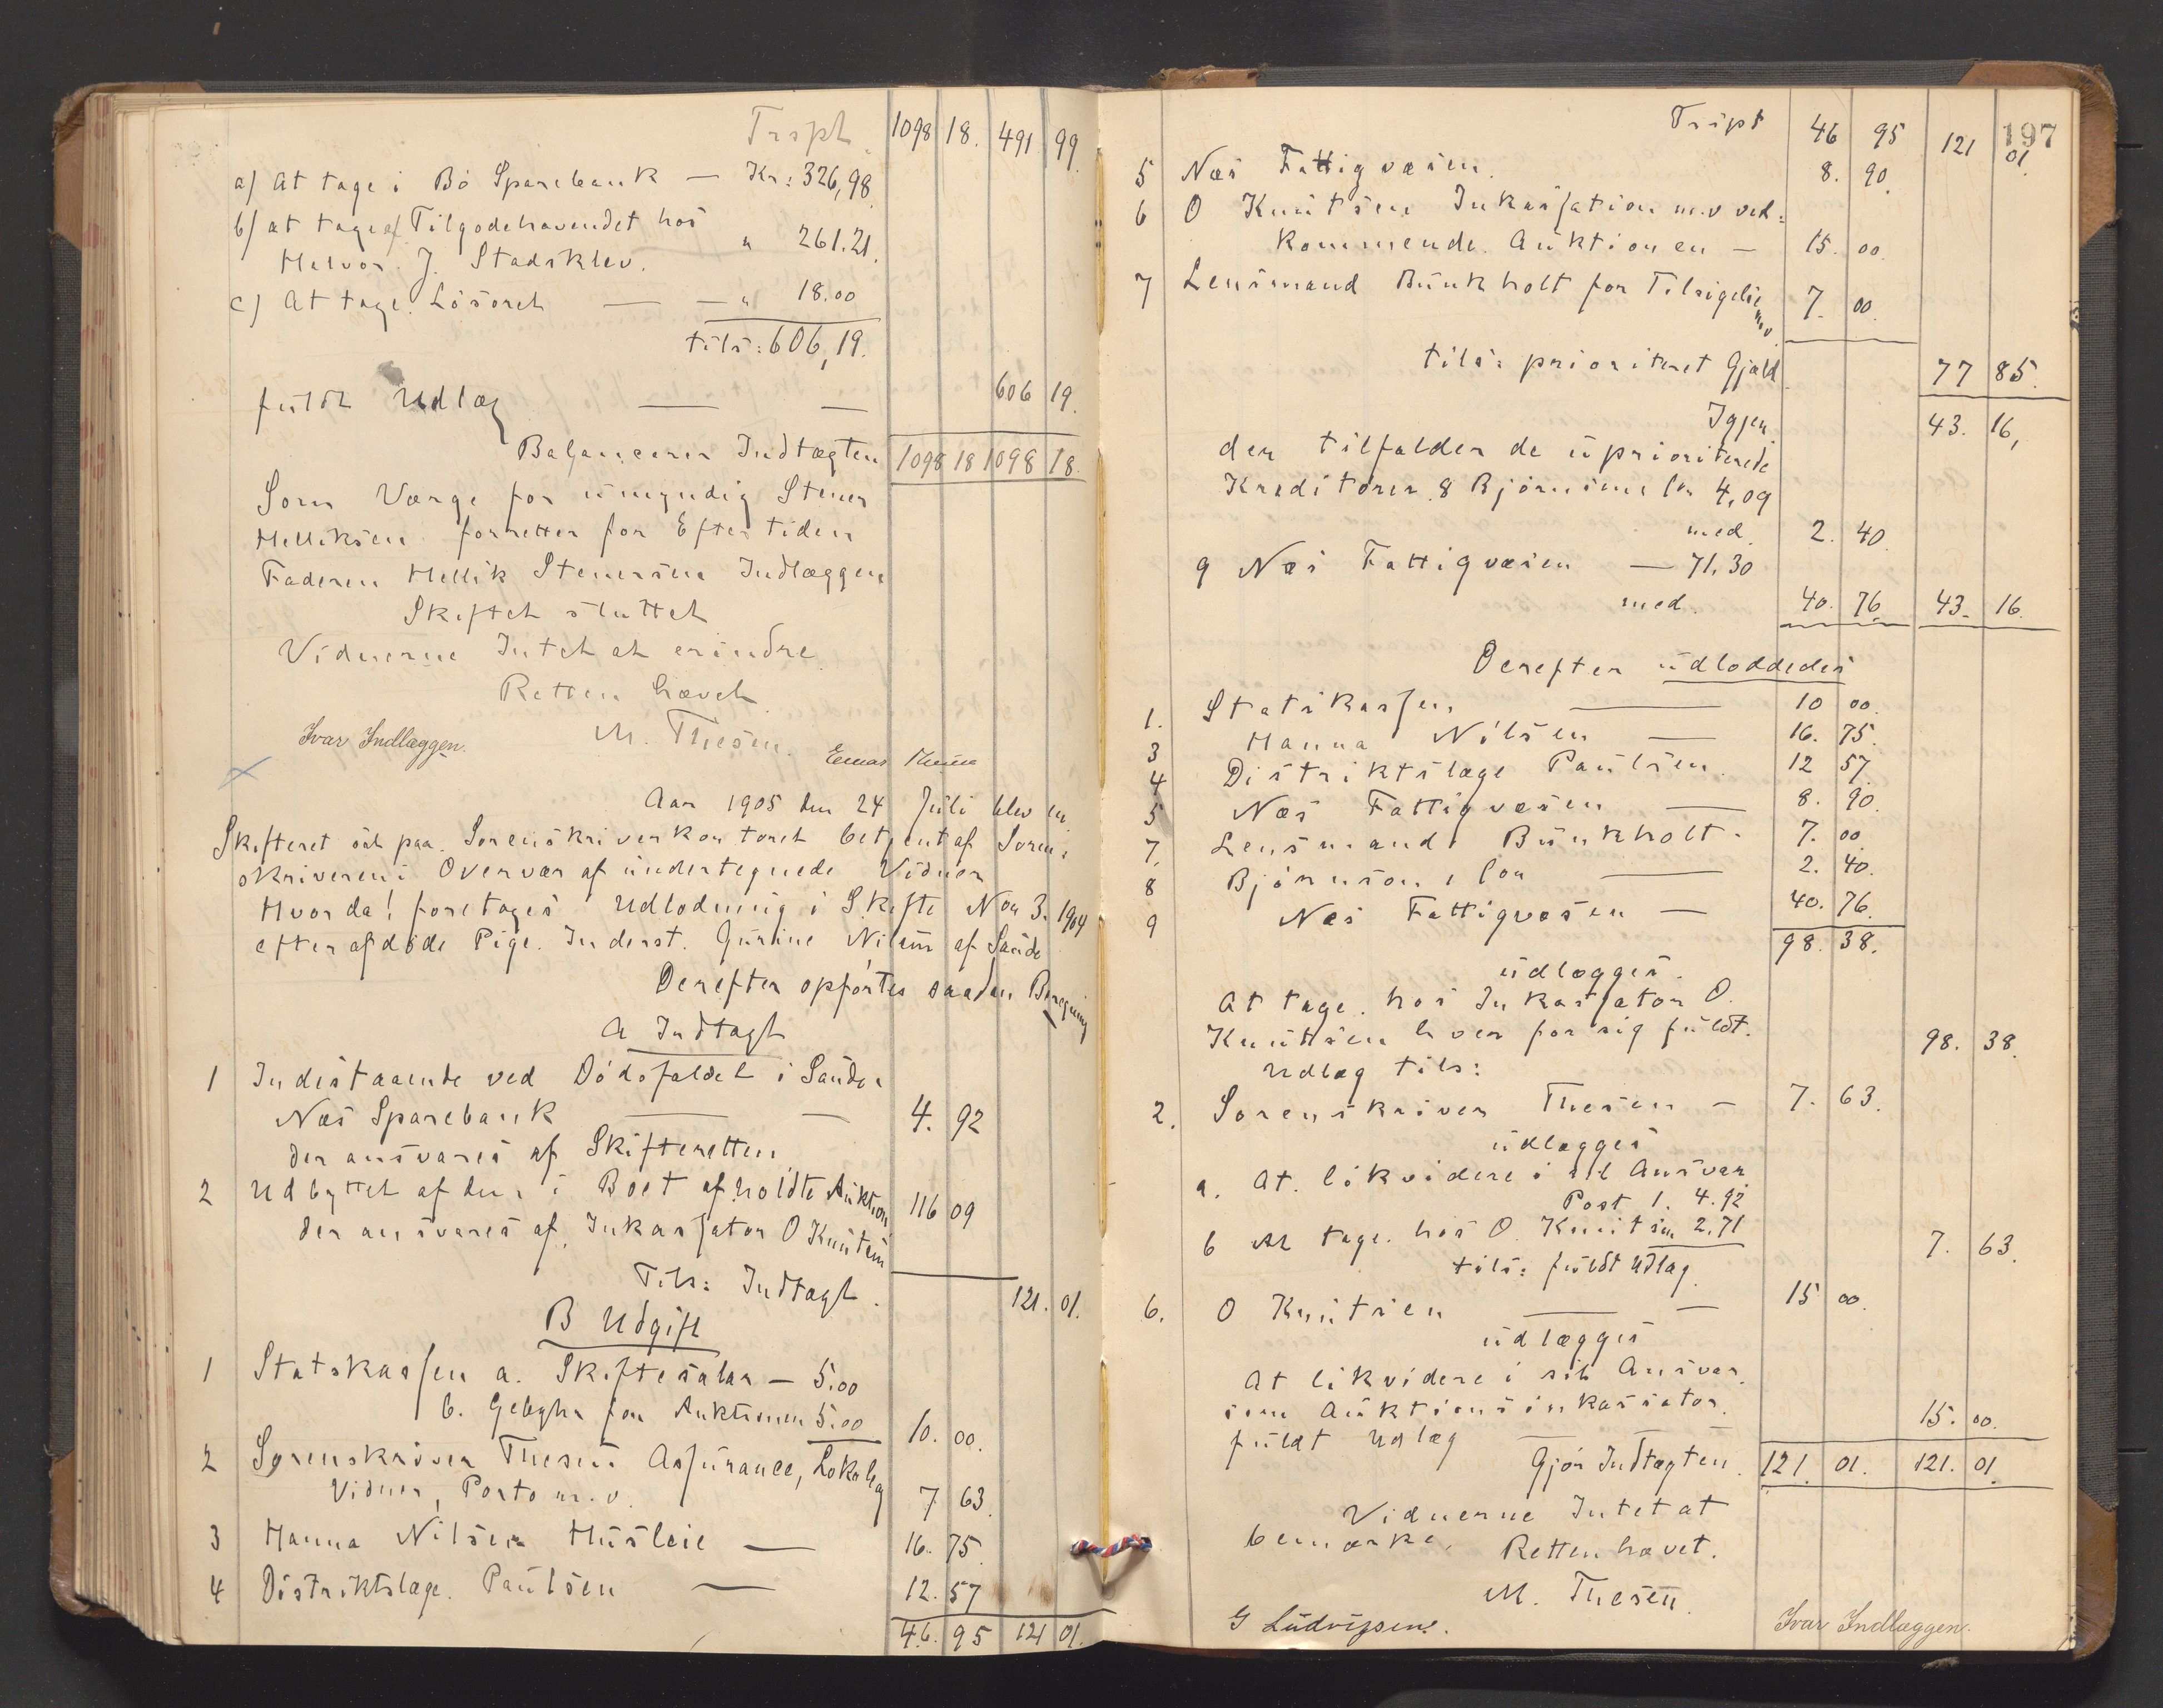 Trspt. 1098 18. 491 99
a) At tage i Bø Sparebank — Kr: 326,98
b) at tage af Tilgodehavendet hos
Halvor J. Stadsklev. " 261.21.
c) At tage Løsøret — — " 18.00
tils: 606,19.
fuldt Udlæg — — 606 19.
Balancerer Indtægten 1098 18 1098 18.
Som Værge for umyndig Stener
Helliksen forretter for Eftertiden
Faderen Hellik Stenersen Indlæggen
Skiftet sluttet
Vidnerne Intet at erindre.
Retten hævet.
M. Thesen.
Ivar Indlæggen.
Aar 1905 den 24 Juli blev en
Skifteret sat paa Sorenskriverkontoret betjent af Soren-
skriveren i Overvær af undertegnede Vidner
Hvor da! foretoges Udlodning i Skifte No 3. 1904
efter afdøde Pige. Inderst. Gurine Nilsen af Saude
Derefter opførtes saadan Beregning
A Indtægt
1 Indestaaende ved Dødsfaldet i Saude
Næs Sparebank — — 4. 92
der ansvares af Skifteretten
2 Udbyttet af den i Boet afholdte Auktion 116 09
der ansvares af Inkassator O Knutsen
Tils: Indtægt. 121. 01.
B Udgift
1 Statskassen a. Skiftesalær — 5.00
b. Gebyhr for Auktionen 5.00 10. 00.
2 Sorenskriver Thesen Assurance, Lokale
Vidner, Porto m.v. 7 63.
3 Hanna Nilsen Husleie — 16. 75.
4 Distriktslæge. Paulsen — 12. 57
46. 95 121 01.
197
Trspt 46 95 121 01.
5 Næs Fattigvæsen. 8. 90.
6 O Knutsen Inkassation m.v ved-
kommende Auktionen — 15. 00.
7 Lensmand Bunkholt for Tilsigelse m.v. 7. 00.
tils: prioriteret Gjæld. 77 85.
Igjen 43. 16,
der tilfalder de uprioriterede
Kreditorer. 8 Bjørnsons for 4,09
med. 2. 40.
9 Næs Fattigvæsen — 71.30
med. 40. 76. 43. 16.
Derefter udloddedes
1. Statskassen — 10 00.
3 Hanna Nilsen — 16. 75.
4 Distriktslæge Paulsen. 12 57.
5 Næs Fattigvæsen — 8. 90.
7. Lensmand Bunkholt. 7. 00.
8 Bjørnsons — 2. 40.
9 Næs Fattigvæsen — 40. 76.
98. 38.
udlægges.
At tage hos Inkassator O.
Knutsen hver for sig fuldt.
Udlæg tils: 98. 38.
2. Sorenskriver Thesen — 7. 63.
udlægges
a. At likvidere i sit Ansvar
Post 1. 4.92
b At tage hos O. Knutsen 2.71
tils: fuldt Udlæg. 7. 63.
6. O Knutsen — — 15 00.
udlægges
At likvidere i sit Ansvar.
som Auktionsinkassator.
fuldt Udlæg 15. 00.
Gjør Indtægten. 121. 01. 121. 01.
Vidnerne Intet at
bemærke. Retten hævet.
M. Thesen.
G Ludvigsen. Ivar Indlæggen.